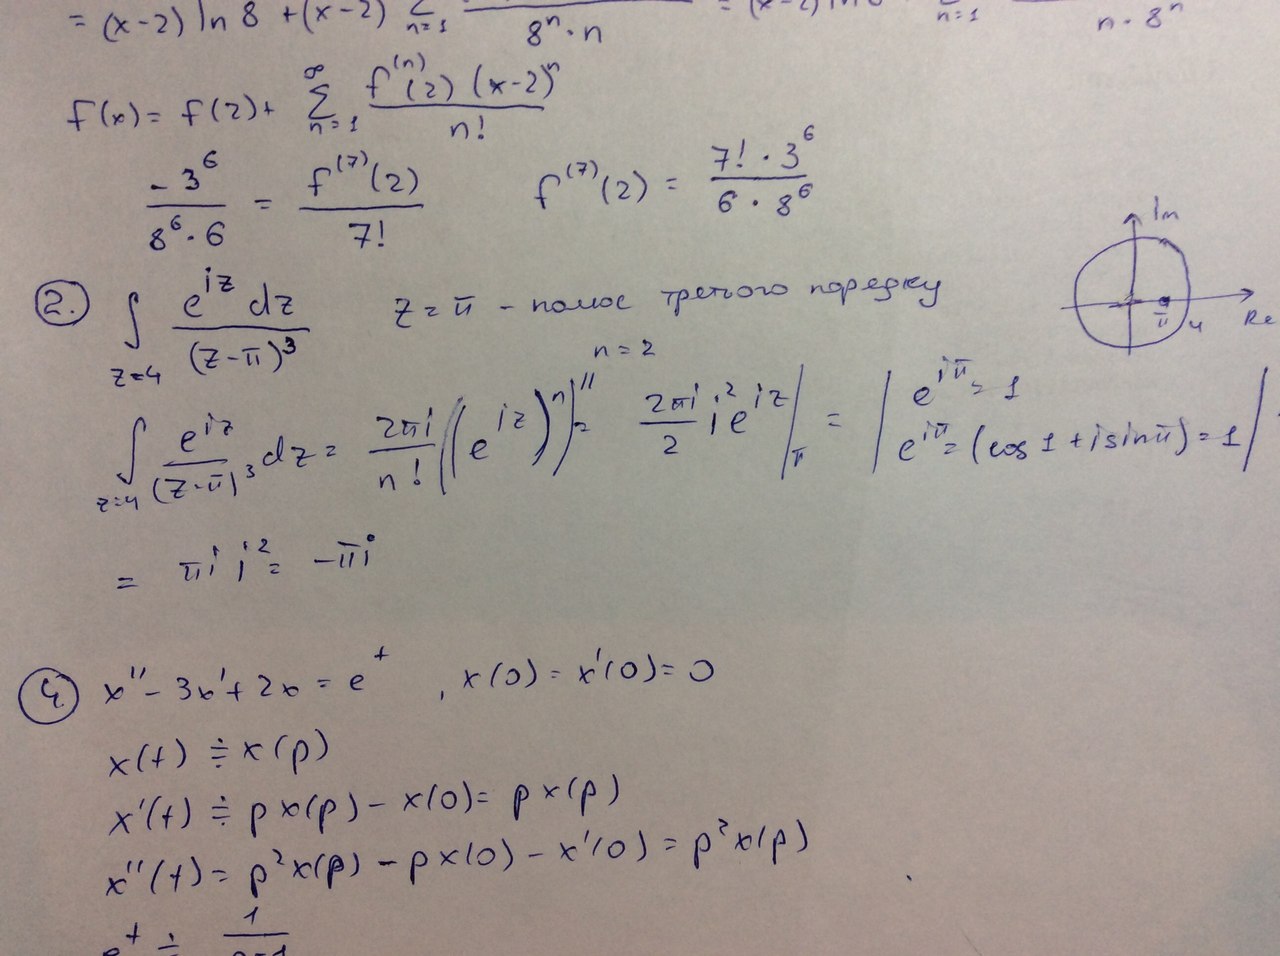 = (x-2) ln 8 + (x-2) Σ n=1 8ⁿ·n = (x-2) ln n=1 n·8ⁿ
f(x) = f(2) + Σ_{n=1}^{∞} f⁽ⁿ⁾(2) (x-2)ⁿ / n!
-3⁶ / 8⁶·6 = f⁽⁷⁾(2) / 7! f⁽⁷⁾(2) = 7!·3⁶ / 6·8⁶
Im
Re
π 4
2. ∫_{z=4} e^{iz} dz / (z-π)³ z=π - полюс третьего порядку
n=2
∫_{z=4} e^{iz} / (z-π)³ dz = 2πi / n! ((e^{iz})ⁿ)|'' = 2πi / 2 i² e^{iz} |_π = | e^{iπ} = 1
e^{iπ} = (cos 1 + i sin π) = 1 |
= πi i² = -πi
4. x'' - 3x' + 2x = e^t , x(0) = x'(0) = 0
x(t) ≑ x(p)
x'(t) ≑ p x(p) - x(0) = p x(p)
x''(t) = p² x(p) - p x(0) - x'(0) = p² x(p)
e^t ≑ 1 / p-1